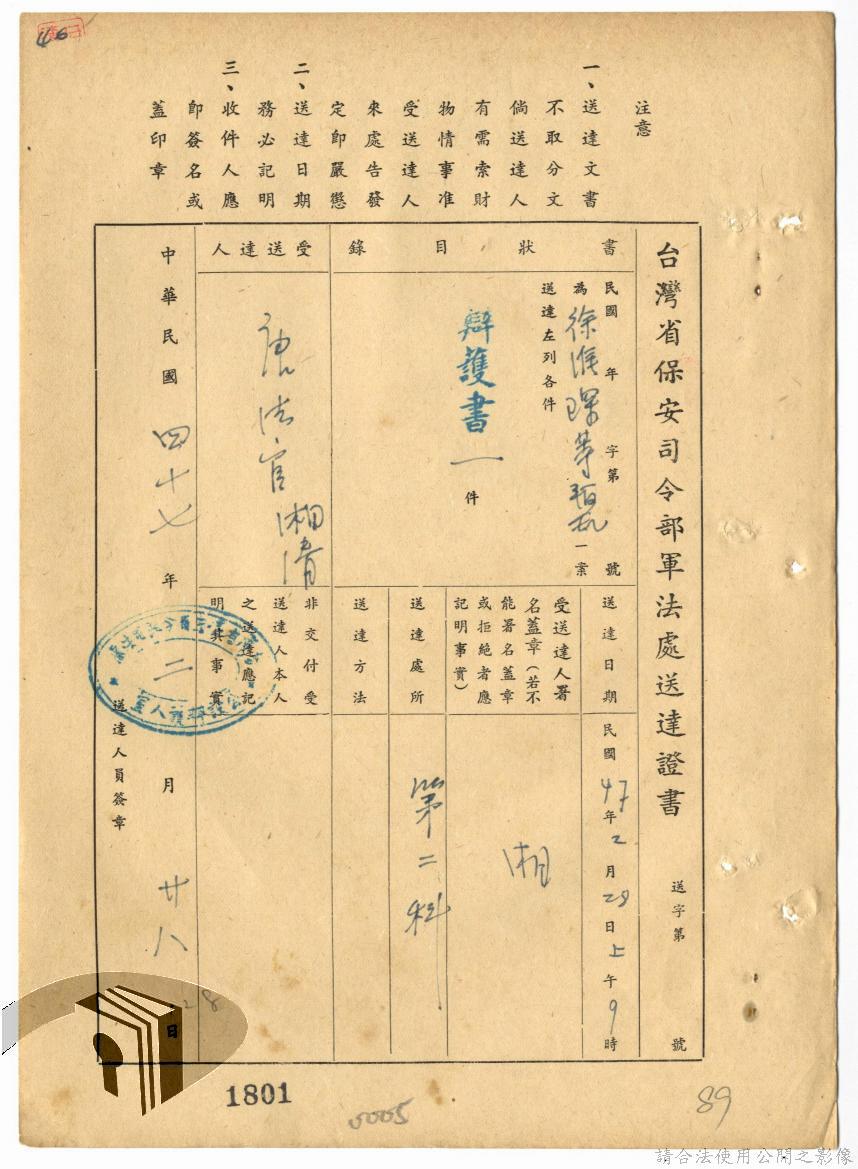 46
注意
一、送達文書
不取分文
倘送達人
有需索財
物情事准
受送達人
來處告發
定即嚴懲
二、送達日期
務必記明
三、收件人應
即簽名或
蓋印章
台灣省保安司令部軍法處送達證書
送字第　　號
書狀目錄
民國　年　字第　號
為徐淮琛等　一案
送達左列各件
辯護書一件
受送達人
法官湘清
送達日期
民國47年2月28日上午9時
受送達人署
名蓋章(若不
能署名蓋章
或拒絕者應
記明事實)
湘
送達處所
第二科
送達方法
非交付受
送達人本人
之送達應記
明其事實
中華民國四十七年二月廿八日
送達人員簽章
28
1801
0005
89
請合法使用公開之影像